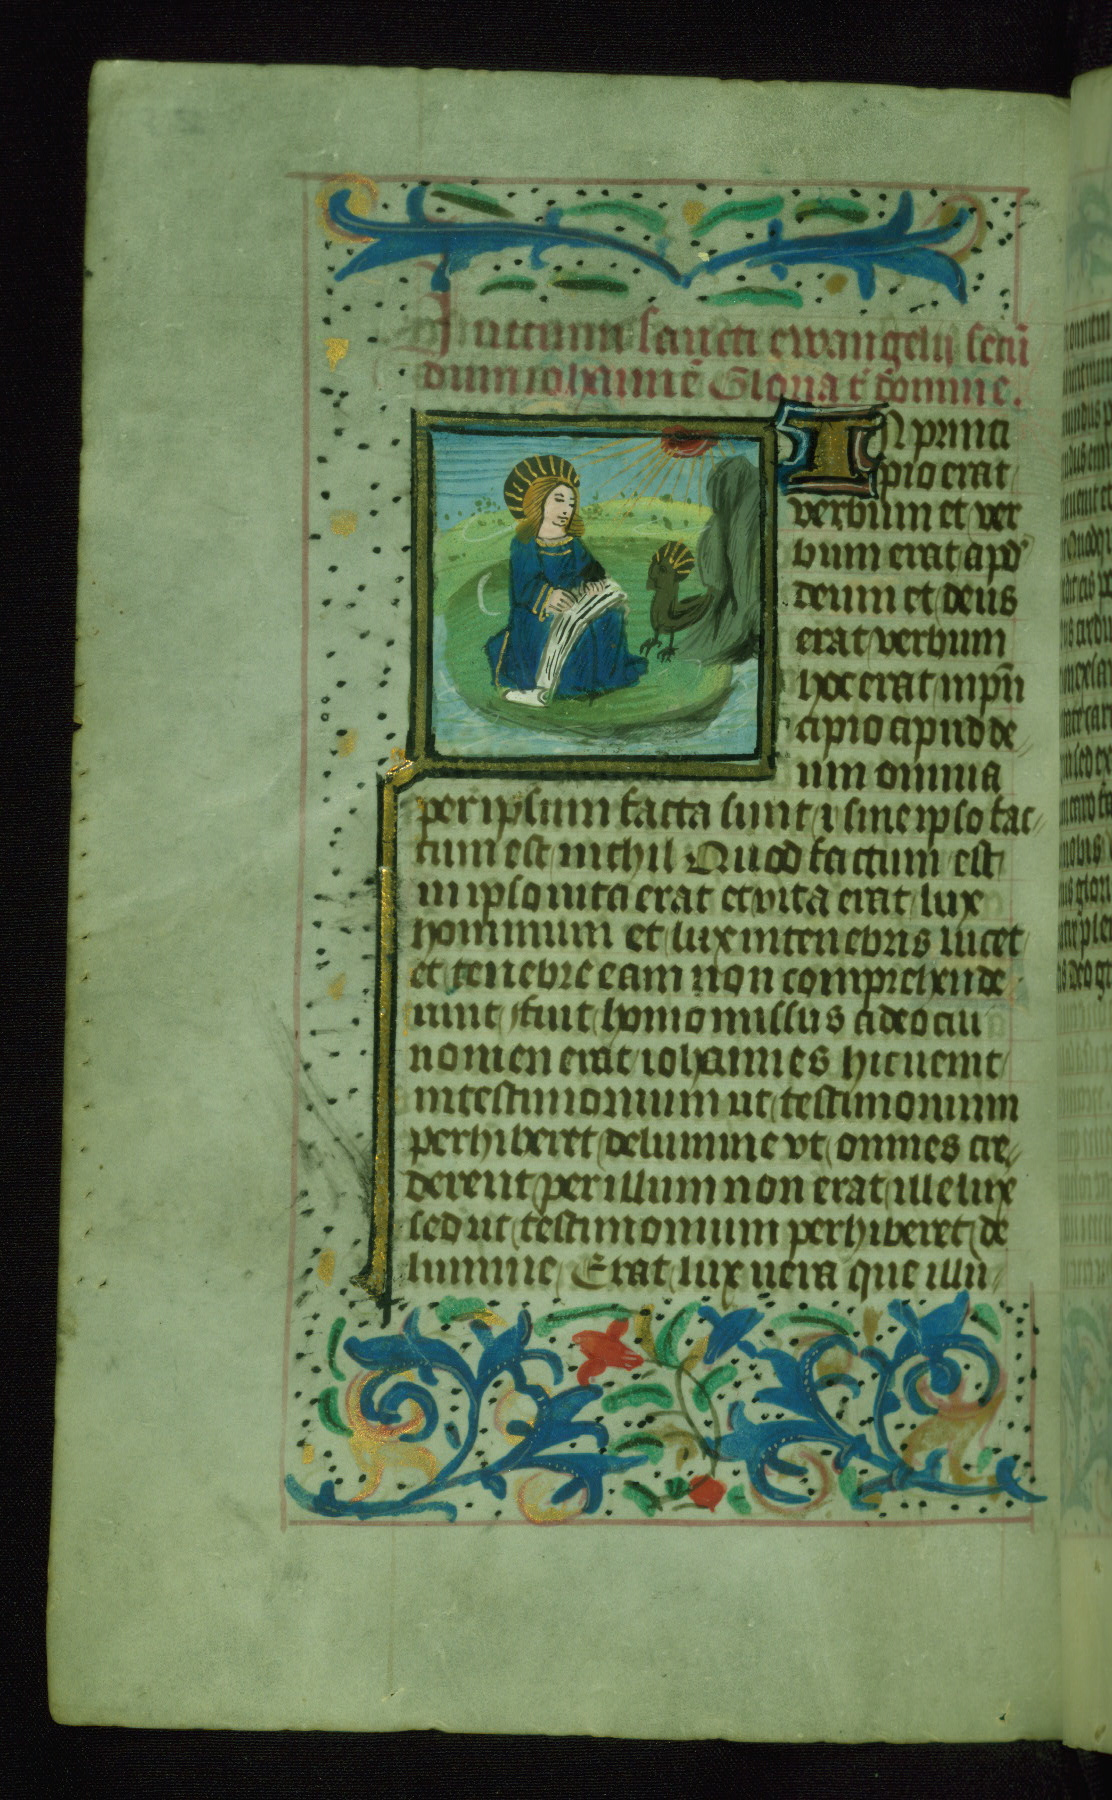 Inicium sancti ewangelij secū
dum iohannē Gloria t̄ domine.
IN princi
pio erat
verbum et ver
bum erat apd'
deum et deus
erat verbum
hoc erat in pⁱn
cipio apud de
um omnia
per ipsum facta sunt i sine ipso fac
tum est nichil Quod factum est
in ipso uita erat et vita erat lux
hominum et lux in tenebris lucet
et tenebre eam non comprehende
runt fuit homo missus a deo cui
nomen erat iohannes hic uenit
in testimonium ut testimonium
perhiberet de lumine vt omnes cre
derent per illum non erat ille lux
sed ut testimonium perhiberet de
lumine Erat lux uera que illu